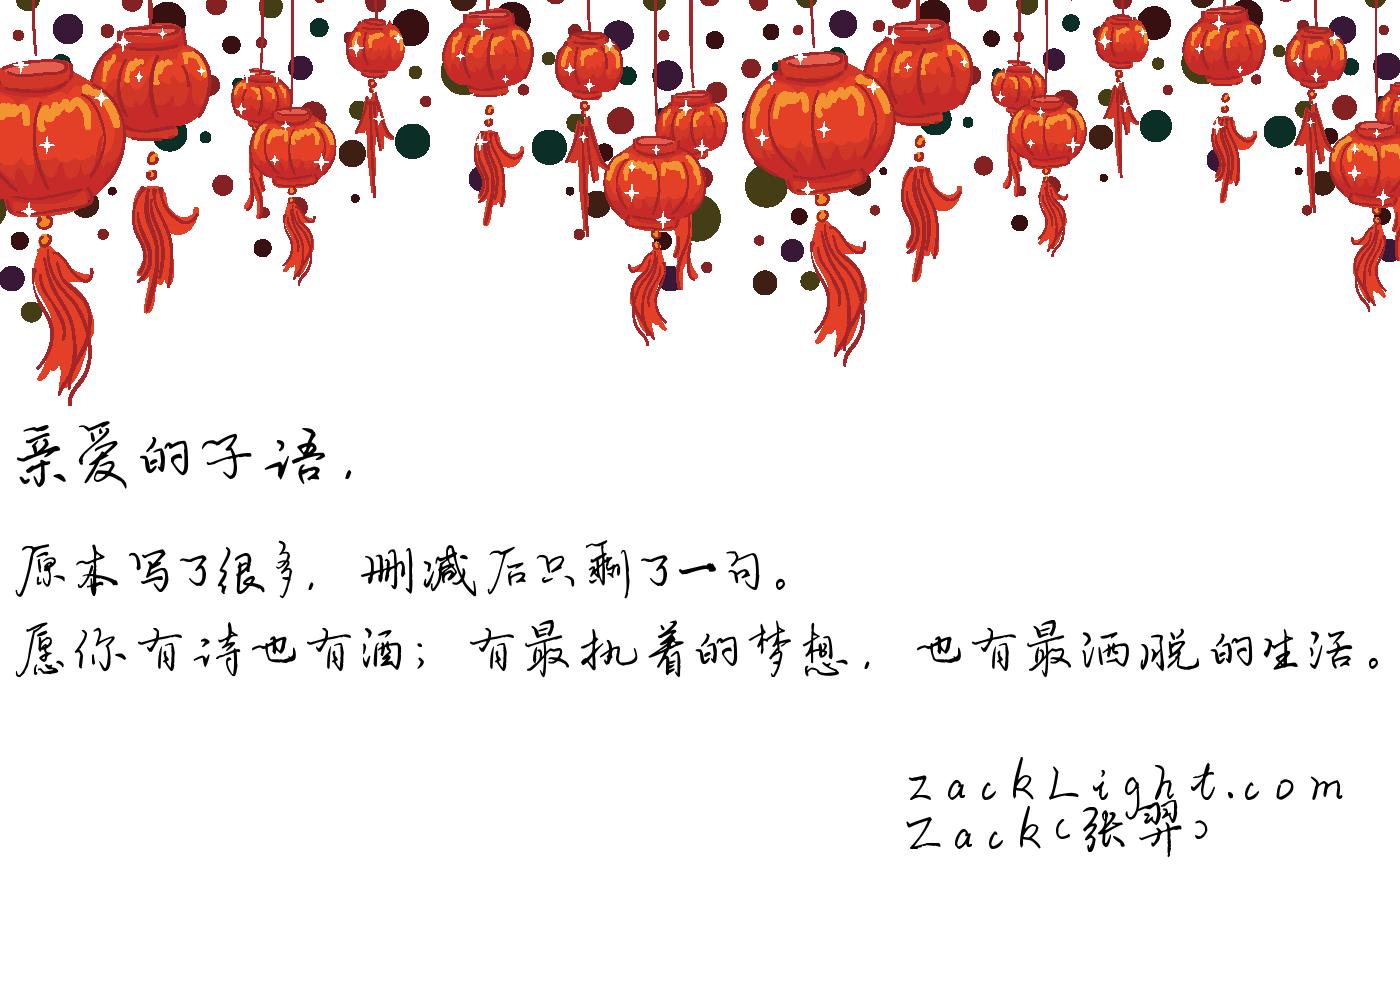 亲爱的子语，
原本写了很多，删减后只剩了一句。
愿你有诗也有酒；有最执着的梦想，也有最洒脱的生活。
zackLight.com
Zack（张羿）